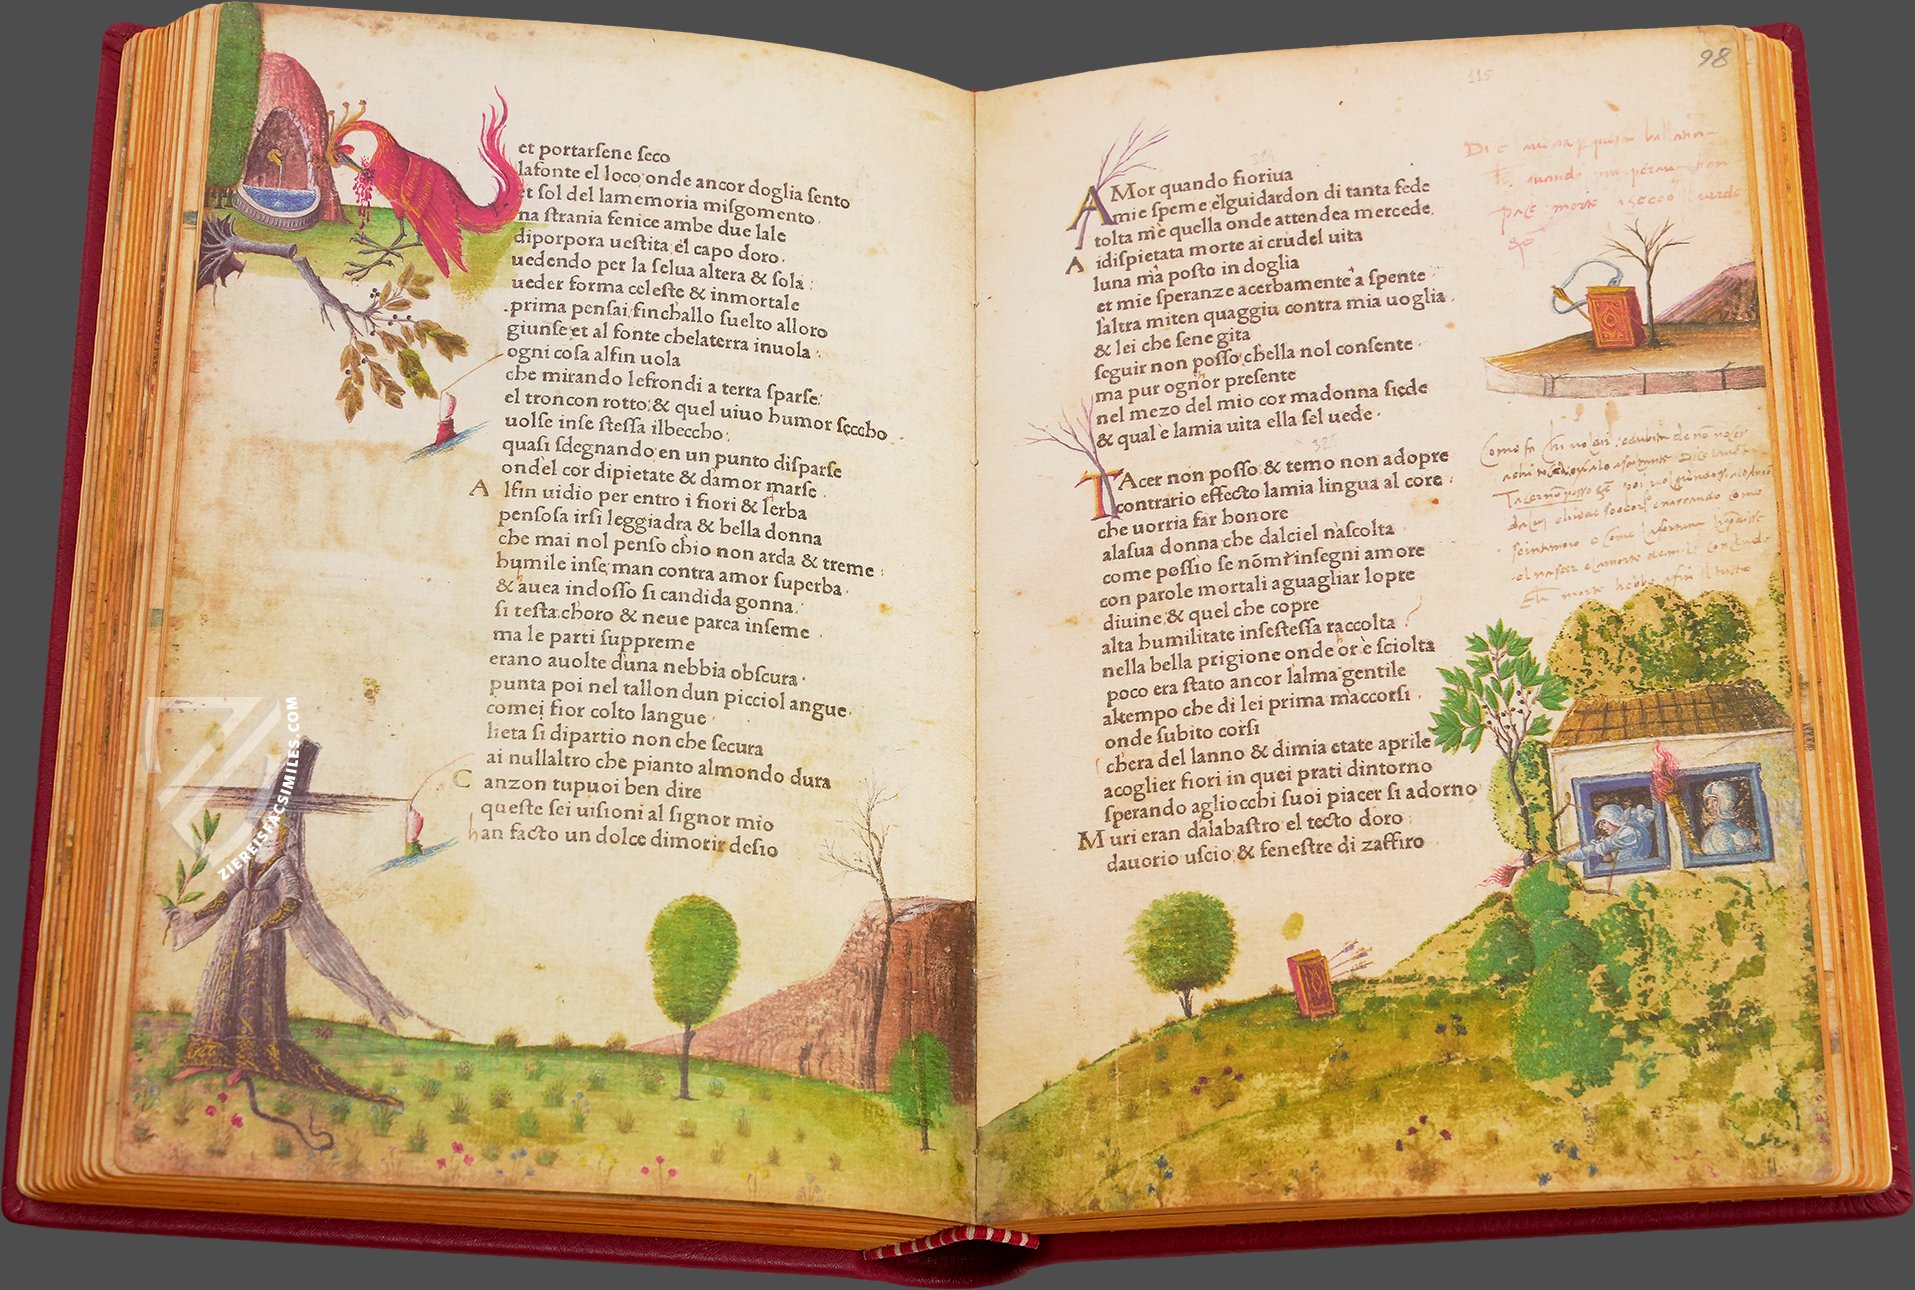 et portarſene ſeco
lafonte el loco; onde ancor doglia ſento
et ſol del lamemoria miſgomento.
na ſtrania fenice ambe due lale
diporpora ueſtita el capo doro.
uedendo per la ſelua altera & ſola:
ueder forma celeſte & inmortale
prima penſai; finchallo ſuelto alloro
giunſe; et al fonte chelaterra inuola.
ogni coſa alfin uola
che mirando lefrondi a terra ſparſe;
el troncon rotto; & quel uiuo humor ſeccho
uolſe inſe ſteſſa ilbeccho.
quaſi ſdegnando en un punto diſparſe
ondel cor dipietate & damor marſe.
Alfin uidio per entro i fiori & lerba
penſoſa irſi leggiadra & bella donna
che mai nol penſo chio non arda & treme:
humile inſe; man contra amor ſuperba.
& auea indoſſo ſi candida gonna.
ſi teſta choro & neue parea inſeme.
ma le parti ſuppreme
erano auolte duna nebbia obſcura.
punta poi nel tallon dun picciol angue.
comei fior colto langue
lieta ſi dipartio non che ſecura
ai nullaltro che pianto almondo dura
Canzon tupuoi ben dire
queſte ſei uiſioni al ſignor mio
han facto un dolce dimorir deſio
ZIEREISFACSIMILES.COM
98
115
AMor quando fioriua
mie ſpeme elguidardon di tanta fede
tolta mè quella onde attendea mercede.
A idiſpietata morte ai crudel uita
luna ma poſto in doglia
et mie ſperanze acerbamente a ſpente
laltra miten quaggiu contra mia uoglia.
& lei che ſene gita
ſeguir non poſſo chella nol conſente.
ma pur ognor preſente
nel mezo del mio cor madonna ſiede
& qual è lamia uita ella ſel uede.
TAcer non poſſo & temo non adopre
contrario effecto lamia lingua al core.
che uorria far honore
alaſua donna che dalciel naſcolta
come poſſio ſe nõmrinſegni amore
con parole mortali aguagliar lopre
diuine; & quel che copre
alta humilitate inſeſteſſa raccolta
nella bella prigione onde or è ſciolta
poco era ſtato ancor lalma gentile
altempo che di lei prima maccorſi.
onde ſubito corſi
chera del lanno & dimia etate aprile
acoglier fiori in quei prati dintorno
ſperando agliocchi ſuoi piacer ſi adorno
Muri eran dalabaſtro el tecto doro
dauorio uſcio & feneſtre di zaffiro